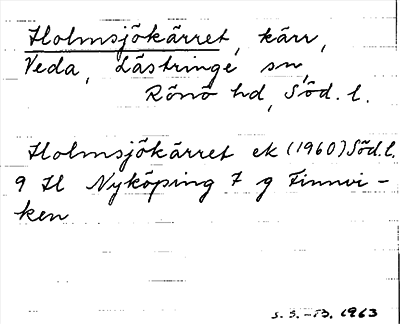 Holmsjökärret, kärr,
Veda, Lästringe sn,
Rönö hd, Söd. l.
Holmsjökärret ek (1960) Söd.l.
9 H Nyköping 7 g Finnvi-
ken
1963